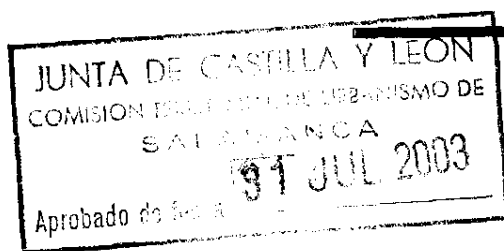 JUNTA DE CASTILLA Y LEON
COMISION DE URBANISMO DE
SALAMANCA
31 JUL 2003
Aprobado